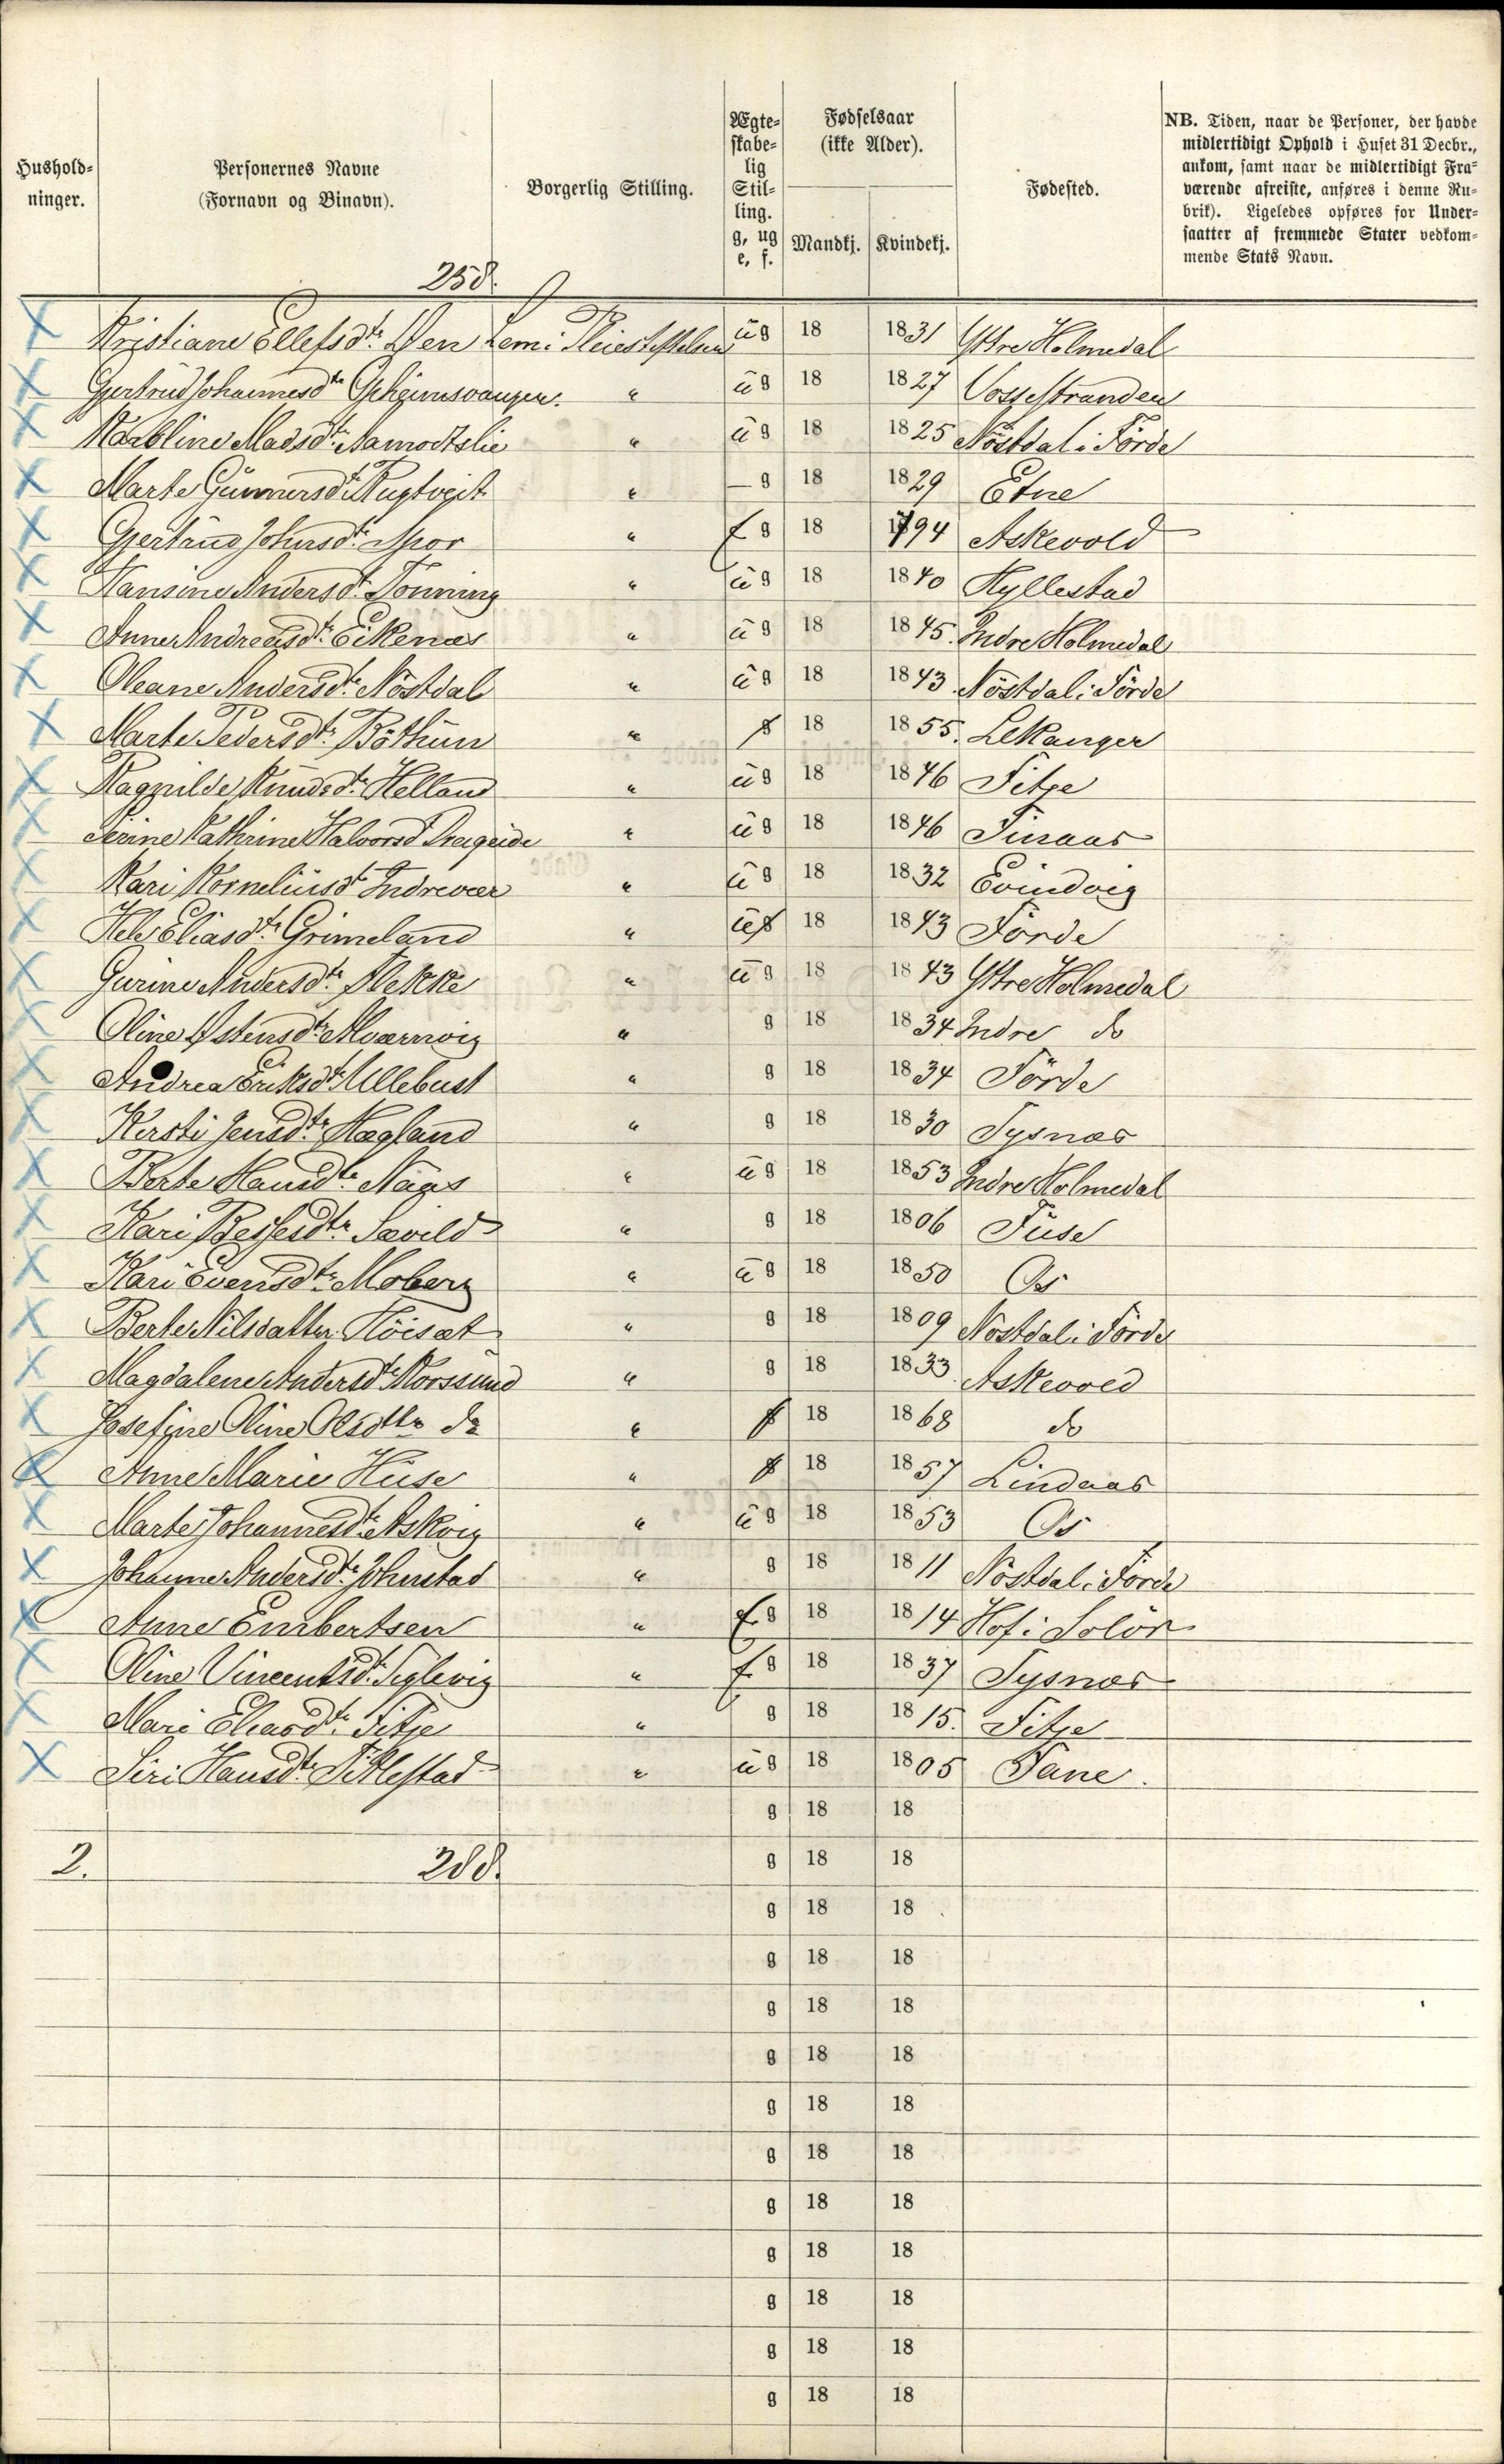 Hushold-
ninger.
Personernes Navne
(Fornavn og Binavn).
Borgerlig Stilling.
Ægte-
skabe-
lig
Stil-
ling.
g, ug
e, f.
Fødselsaar
(ikke Alder).
Mandkj. Kvindekj.
Fødested.
NB. Tiden, naar de Personer, der havde
midlertidigt Ophold i Huset 31 Decbr.,
ankom, samt naar de midlertidigt Fra-
værende afreiste, anføres i denne Ru-
brik). Ligeledes opføres for Under-
saatter af fremmede Stater vedkom-
mende Stats Navn.
258.
Kristiane Ellefsdtr. Lem i Pleiestiftelsen ug 18 1831 Yttre Holmedal
Gjertrud Johannesdtr " ug 18 1827 Vossestranden
Karoline Madsdtr. Aamodtslie " ug 18 1825 Nöstdal i Förde
Marte Gunnersdtr. Rugtveit " g 18 1829 Etne
Gjertrud Johnsdtr. Mor " f g 18 1794 Askevold
Hansine Andersdtr. Tonning " ug 18 1840 Hyllestad
Anne Andreasdtr. Eikenæs " ug 18 1845. Indre Holmedal
Oleane Andersdtr. Nöstdal " ug 18 1843 Nöstdal i Förde
Marte Pedersdtr. Böthun " g 18 1855. Lekanger
Ragnilde Knudsdtr. Helland " ug 18 1846 Fitje
Serine Kathrine Halvorsd. Drageide " ug 18 1846 Finaas
Kari Korneliusdtr Indrevær " ug 18 1832 Evindvig
Hele Eliasdtr. Grimeland " ug 18 1843 Förde
Gurine Andersdtr. Flekke " ug 18 1843 Yttre Holmedal
Oline Østensdtr. Kværnvig " g 18 1834 Indre do
Andrea Eriksdtr. Ullebust " g 18 1834 Förde
Kersti Jensdtr. Hægland " g 18 1830 Tysnæs
Berte Hansdtr. Nøgs " ug 18 1853 Indre Holmedal
Kari Bessesdtr. Sævild " g 18 1806 Fuse
Kari Evensdtr. Moberg " ug 18 1850 Os
Berte Nilsdatter Höisæt " g 18 1809 Nöstdal i Förde
Magdalene Andersdtr Korssund " g 18 1833 Askevold
Josefine Oline Olsdtr do " g 18 1868 do
Anne Marie Huse " g 18 1857 Lindaas
Marte Johannesdtr. Askvig " ug 18 1853 Os
Johanne Andersdtr. Johnstad " g 18 1811 Nöstdal i Förde
Anne Embertsen " f g 18 1814 Hof i Solör
Oline Vincentsdtr. Teglevig " f g 18 1837 Tysnæs
Mari Eliasdtr. Fitje " g 18 1815. Fitje
Siri Hansdtr. Titlestad " ug 18 1805 Fane.
g 18 18
2. 288. g 18 18
g 18 18
g 18 18
g 18 18
g 18 18
g 18 18
g 18 18
g 18 18
g 18 18
g 18 18
g 18 18
g 18 18